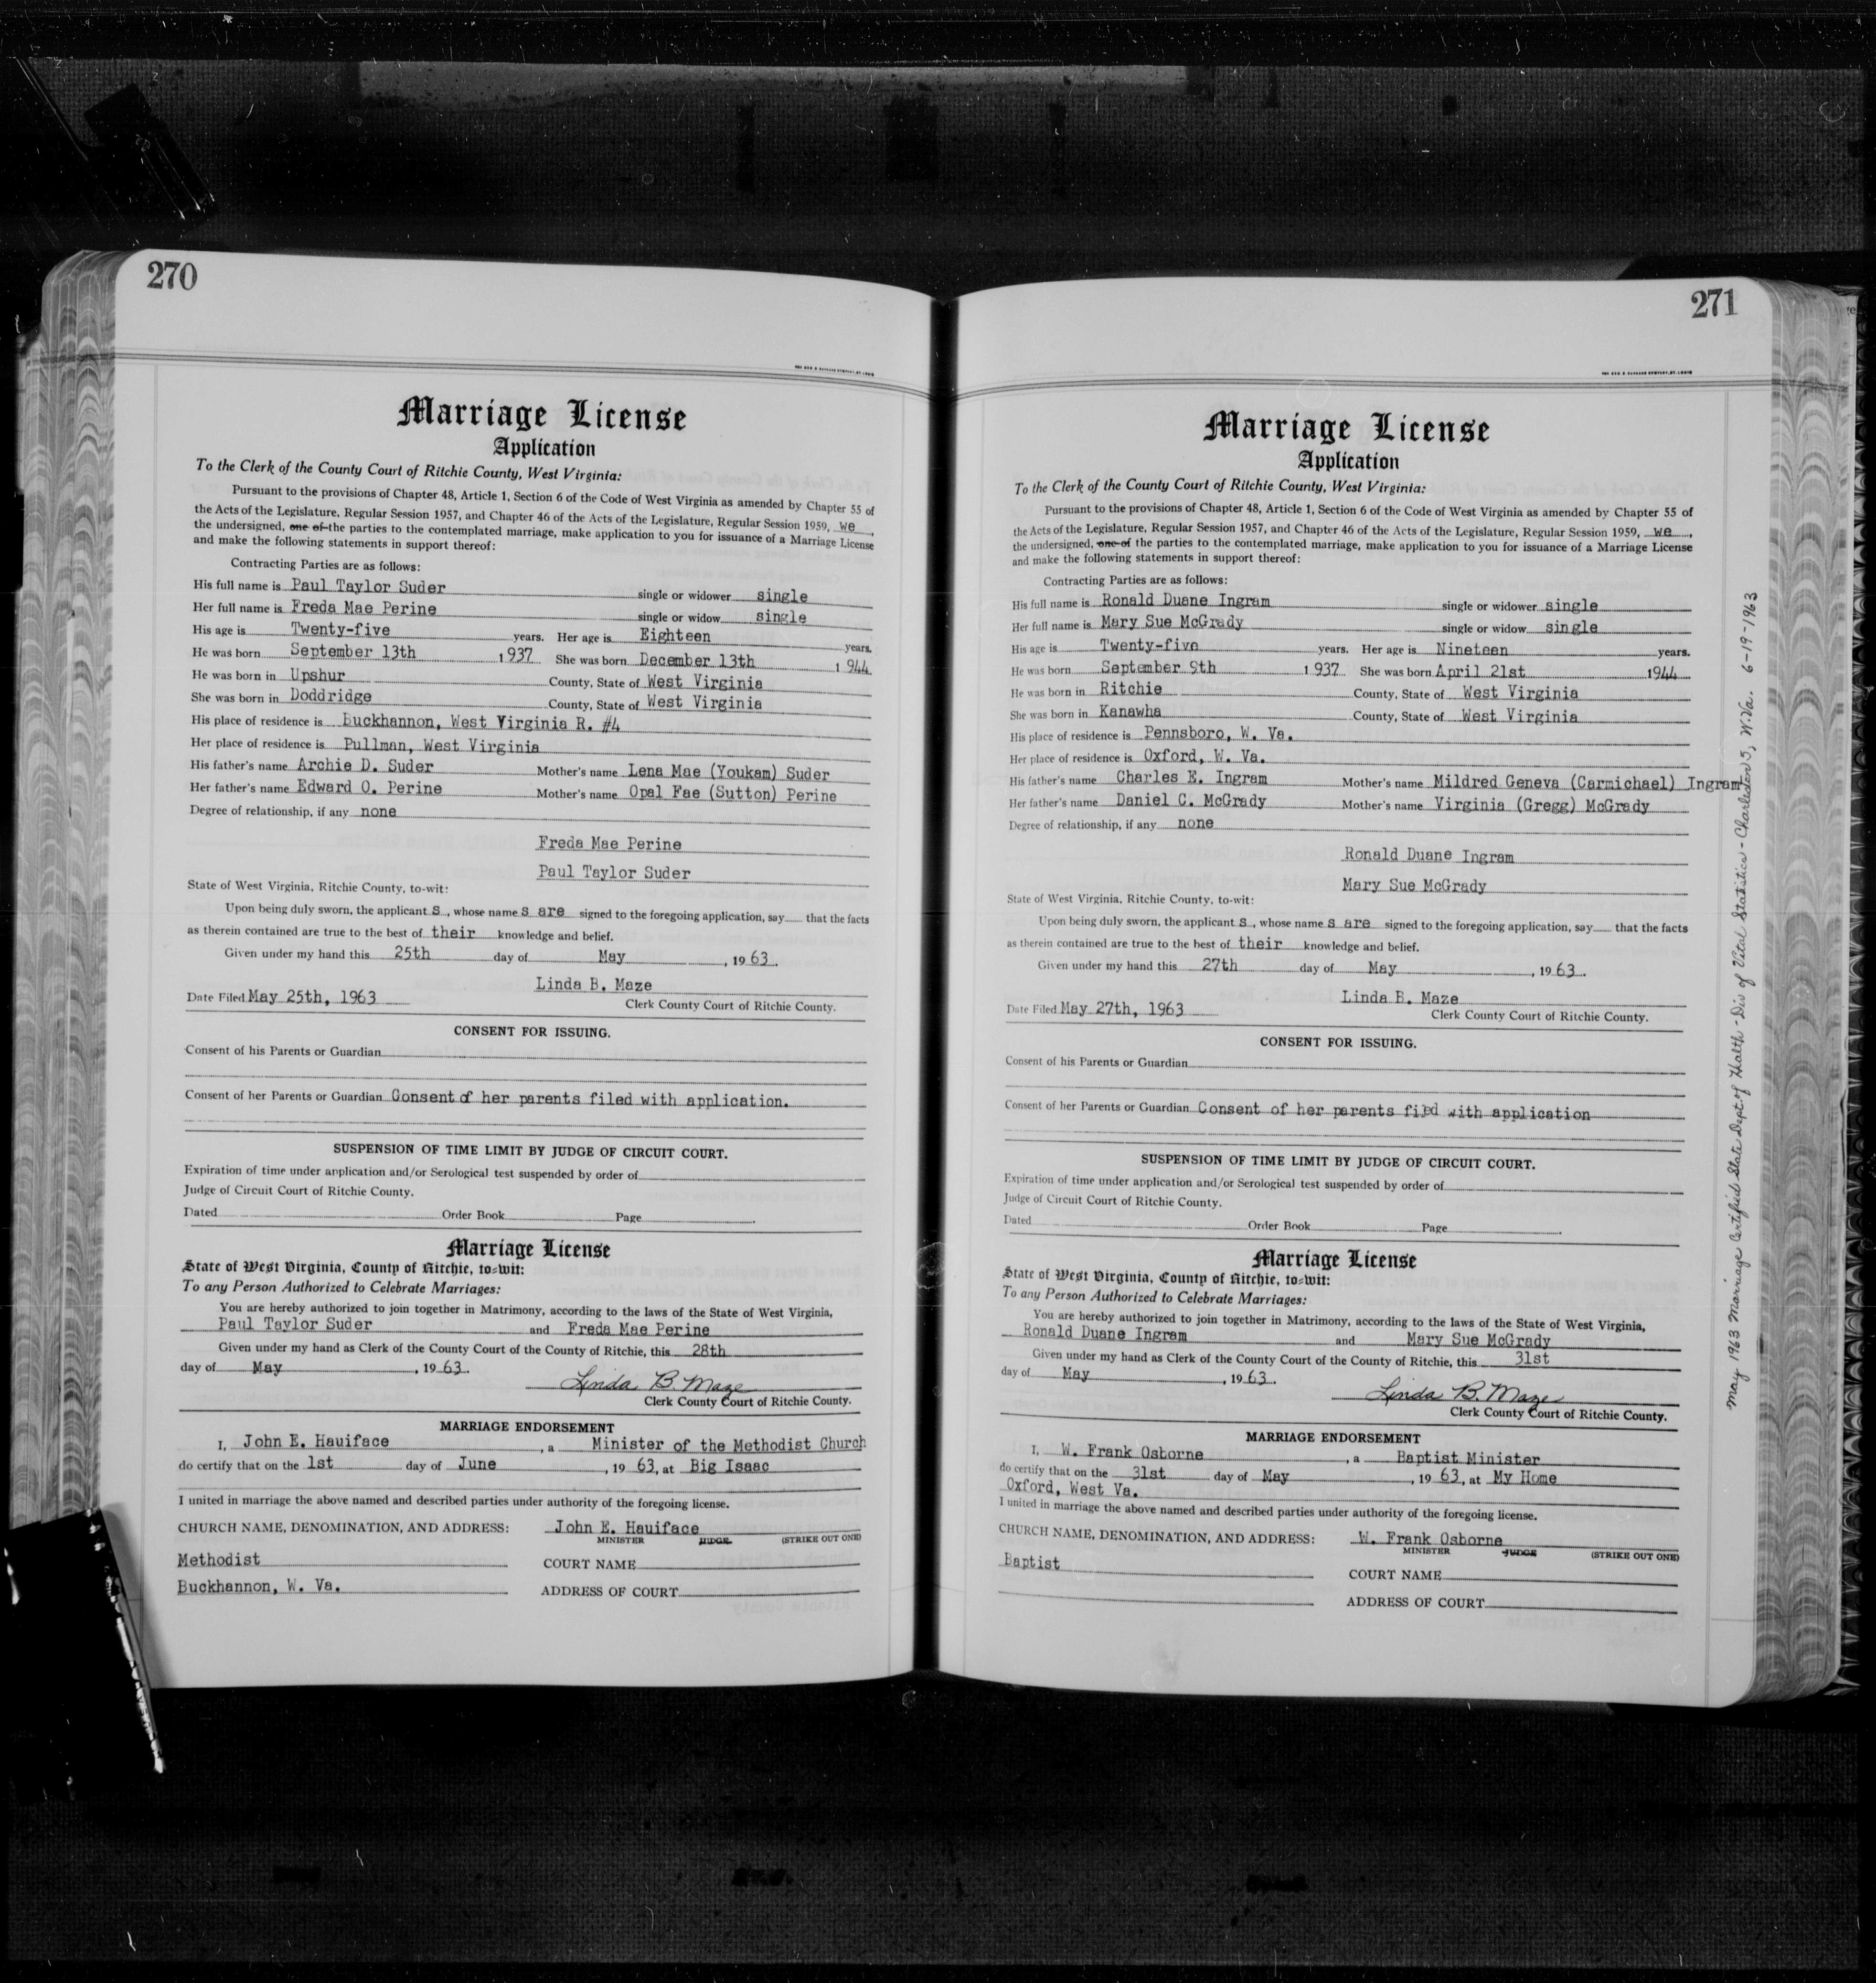 270
Marriage License
Application
To the Clerk of the County Court of Ritchie County, West Virginia:
Pursuant to the provisions of Chapter 48, Article 1, Section 6 of the Code of West Virginia as amended by Chapter 55 of
the Acts of the Legislature, Regular Session 1957, and Chapter 46 of the Acts of the Legislature, Regular Session 1959, we,
the undersigned, one of the parties to the contemplated marriage, make application to you for issuance of a Marriage License
and make the following statements in support thereof:
Contracting Parties are as follows:
His full name is Paul Taylor Suder single or widower single
Her full name is Freda Mae Perine single or widow single
His age is Twenty-five years. Her age is Eighteen years.
He was born September 13th 1937 She was born December 13th 1944
He was born in Upshur County, State of West Virginia
She was born in Doddridge County, State of West Virginia
His place of residence is Buckhannon, West Virginia R. #4
Her place of residence is Pullman, West Virginia
His father's name Archie D. Suder Mother's name Lena Mae (Youkam) Suder
Her father's name Edward O. Perine Mother's name Opal Fae (Sutton) Perine
Degree of relationship, if any none
Freda Mae Perine
Paul Taylor Suder
State of West Virginia, Ritchie County, to-wit:
Upon being duly sworn, the applicant s, whose name s are signed to the foregoing application, say that the facts
as therein contained are true to the best of their knowledge and belief.
Given under my hand this 25th day of May, 1963.
Linda B. Maze
Date Filed May 25th, 1963 Clerk County Court of Ritchie County.
CONSENT FOR ISSUING.
Consent of his Parents or Guardian
Consent of her Parents or Guardian Consent of her parents filed with application.
SUSPENSION OF TIME LIMIT BY JUDGE OF CIRCUIT COURT.
Expiration of time under application and/or Serological test suspended by order of
Judge of Circuit Court of Ritchie County.
Dated Order Book Page.
Marriage License
State of West Virginia, County of Ritchie, to-wit:
To any Person Authorized to Celebrate Marriages:
You are hereby authorized to join together in Matrimony, according to the laws of the State of West Virginia,
Paul Taylor Suder and Freda Mae Perine
Given under my hand as Clerk of the County Court of the County of Ritchie, this 28th
day of May, 1963.
Linda B. Maze
Clerk County Court of Ritchie County.
MARRIAGE ENDORSEMENT
I, John E. Hauiface, a Minister of the Methodist Church
do certify that on the 1st day of June, 1963, at Big Isaac
I united in marriage the above named and described parties under authority of the foregoing license.
CHURCH NAME, DENOMINATION, AND ADDRESS: John E. Hauiface
MINISTER JUDGE (STRIKE OUT ONE)
Methodist COURT NAME
Buckhannon, W. Va. ADDRESS OF COURT
271
Marriage License
Application
To the Clerk of the County Court of Ritchie County, West Virginia:
Pursuant to the provisions of Chapter 48, Article 1, Section 6 of the Code of West Virginia as amended by Chapter 55 of
the Acts of the Legislature, Regular Session 1957, and Chapter 46 of the Acts of the Legislature, Regular Session 1959, we,
the undersigned, one of the parties to the contemplated marriage, make application to you for issuance of a Marriage License
and make the following statements in support thereof:
Contracting Parties are as follows:
His full name is Ronald Duane Ingram single or widower single
Her full name is Mary Sue McGrady single or widow single
His age is Twenty-five years. Her age is Nineteen years.
He was born September 9th 1937 She was born April 21st 1944
He was born in Ritchie County, State of West Virginia
She was born in Kanawha County, State of West Virginia
His place of residence is Pennsboro, W. Va.
Her place of residence is Oxford, W. Va.
His father's name Charles E. Ingram Mother's name Mildred Geneva (Carmichael) Ingram
Her father's name Daniel C. McGrady Mother's name Virginia (Gregg) McGrady
Degree of relationship, if any none
Ronald Duane Ingram
Mary Sue McGrady
State of West Virginia, Ritchie County, to-wit:
Upon being duly sworn, the applicant s, whose name s are signed to the foregoing application, say that the facts
as therein contained are true to the best of their knowledge and belief.
Given under my hand this 27th day of May, 1963.
Linda B. Maze
Date Filed May 27th, 1963 Clerk County Court of Ritchie County.
CONSENT FOR ISSUING.
Consent of his Parents or Guardian
Consent of her Parents or Guardian Consent of her parents filed with application
SUSPENSION OF TIME LIMIT BY JUDGE OF CIRCUIT COURT.
Expiration of time under application and/or Serological test suspended by order of
Judge of Circuit Court of Ritchie County.
Dated Order Book Page.
Marriage License
State of West Virginia, County of Ritchie, to-wit:
To any Person Authorized to Celebrate Marriages:
You are hereby authorized to join together in Matrimony, according to the laws of the State of West Virginia,
Ronald Duane Ingram and Mary Sue McGrady
Given under my hand as Clerk of the County Court of the County of Ritchie, this 31st
day of May, 1963.
Linda B. Maze
Clerk County Court of Ritchie County.
MARRIAGE ENDORSEMENT
I, W. Frank Osborne, a Baptist Minister
do certify that on the 31st day of May, 1963, at My Home
Oxford, West Va.
I united in marriage the above named and described parties under authority of the foregoing license.
CHURCH NAME, DENOMINATION, AND ADDRESS: W. Frank Osborne
MINISTER JUDGE (STRIKE OUT ONE)
Baptist COURT NAME
ADDRESS OF COURT
May 1963 Marriage Certified State Dept. of Health - Div of Vital Statistics - Charleston 5, W.Va. 6-19-1963